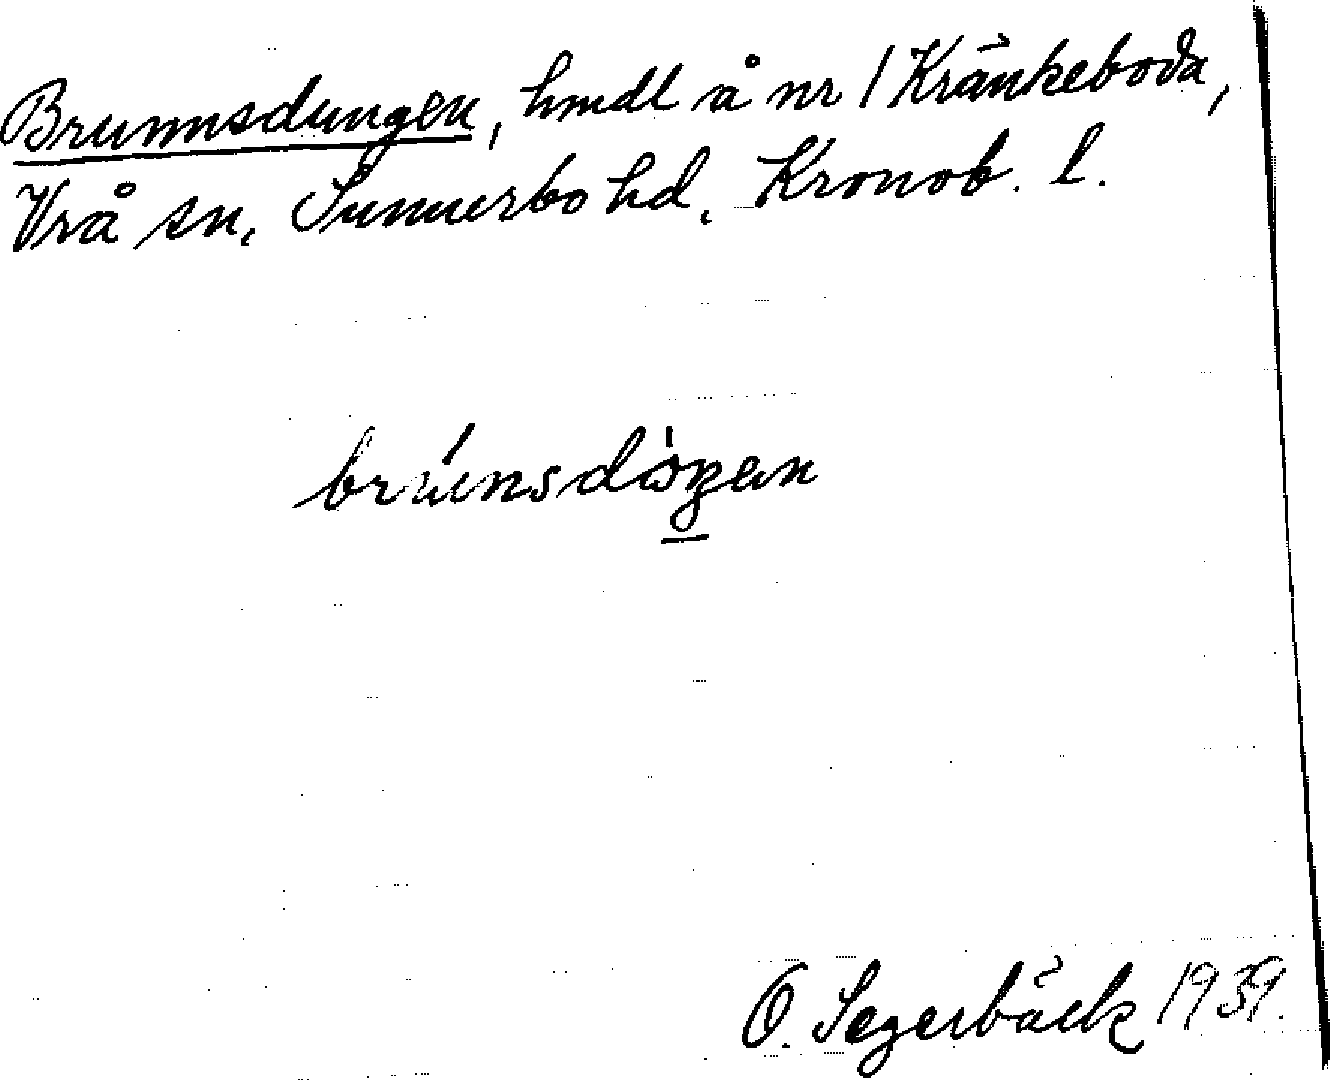 Brunnsdungen, hmdl å nr 1 Kränkeboda,
Vrå sn, Sunnerbo hd, Kronob. l.
brúnsdi̇̀ŋen
O. Segerbäck 1939.